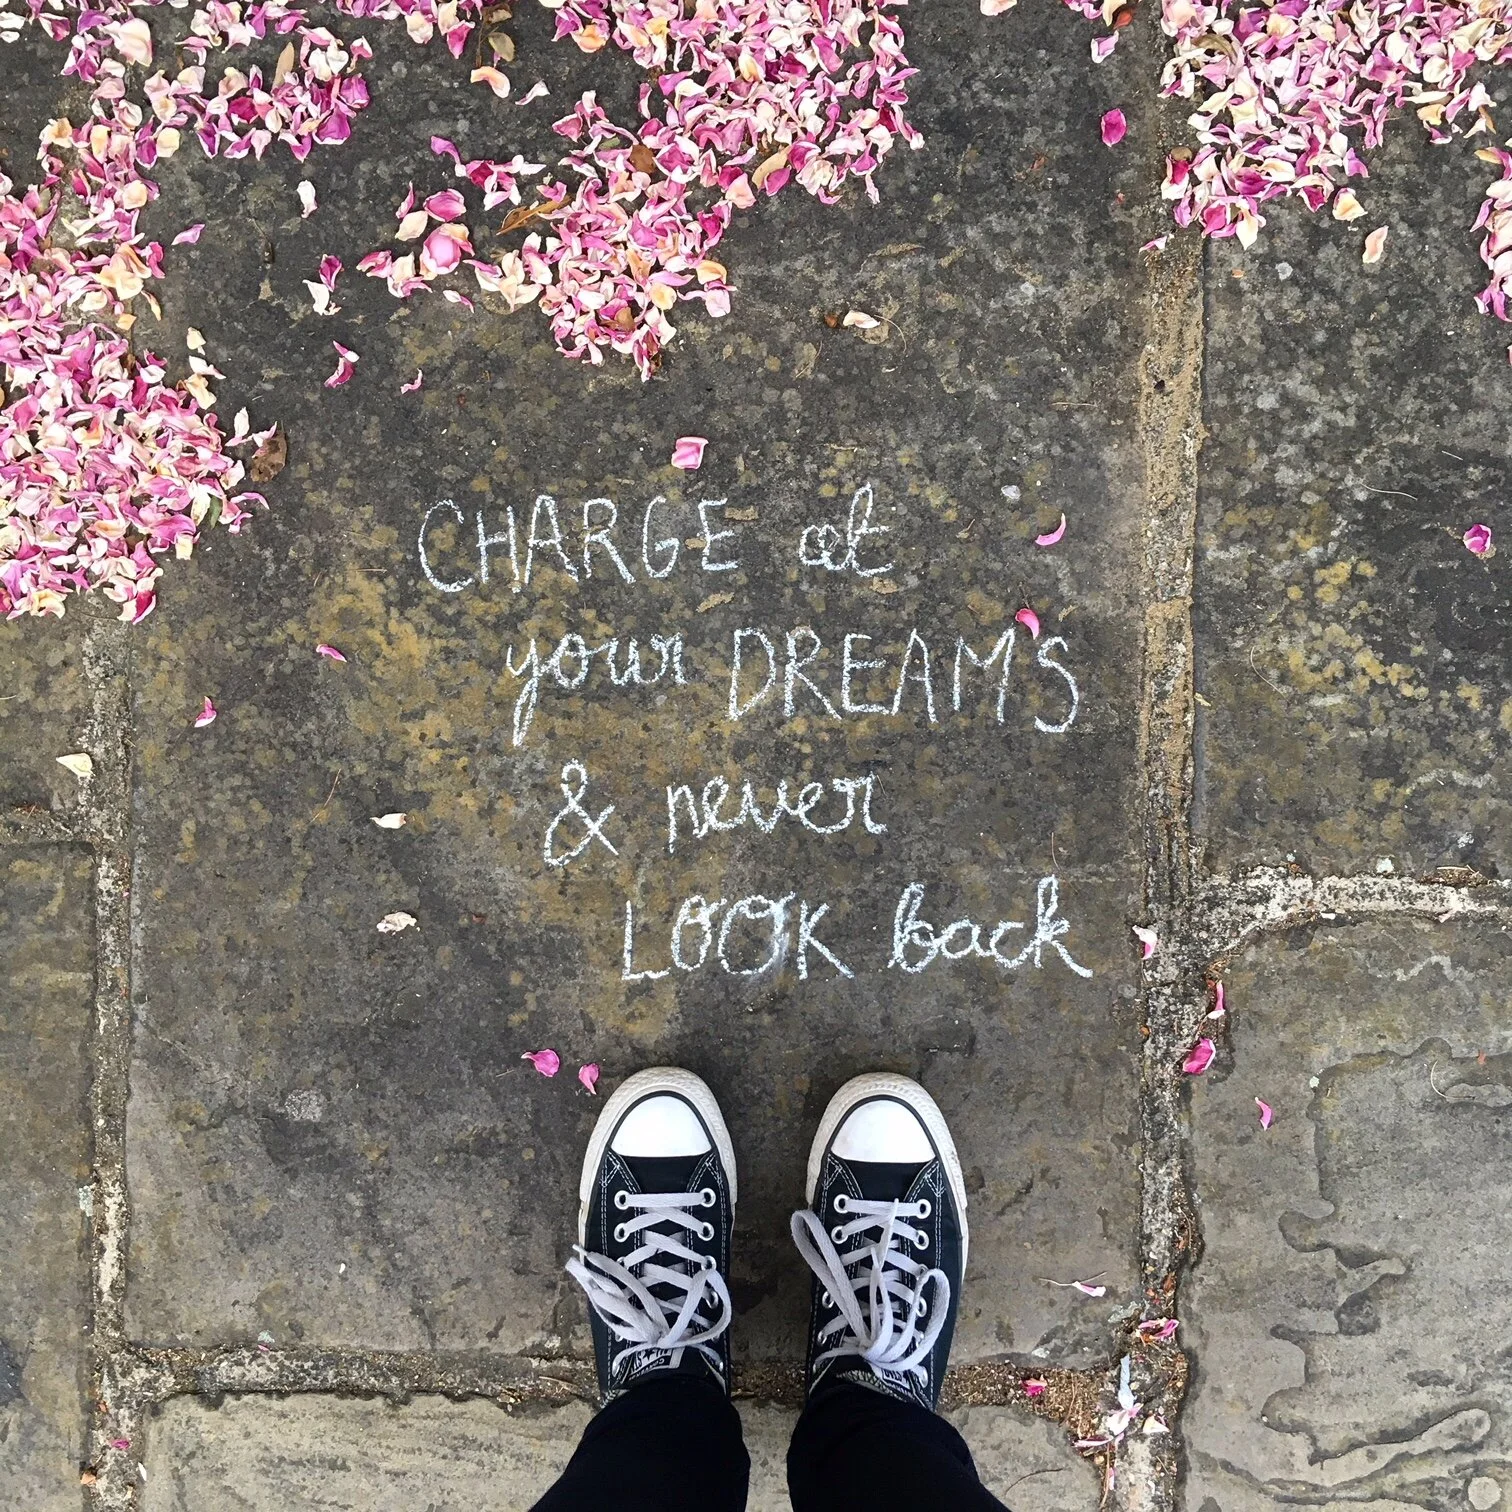 CHARGE at
your DREAMS
& never
LOOK back